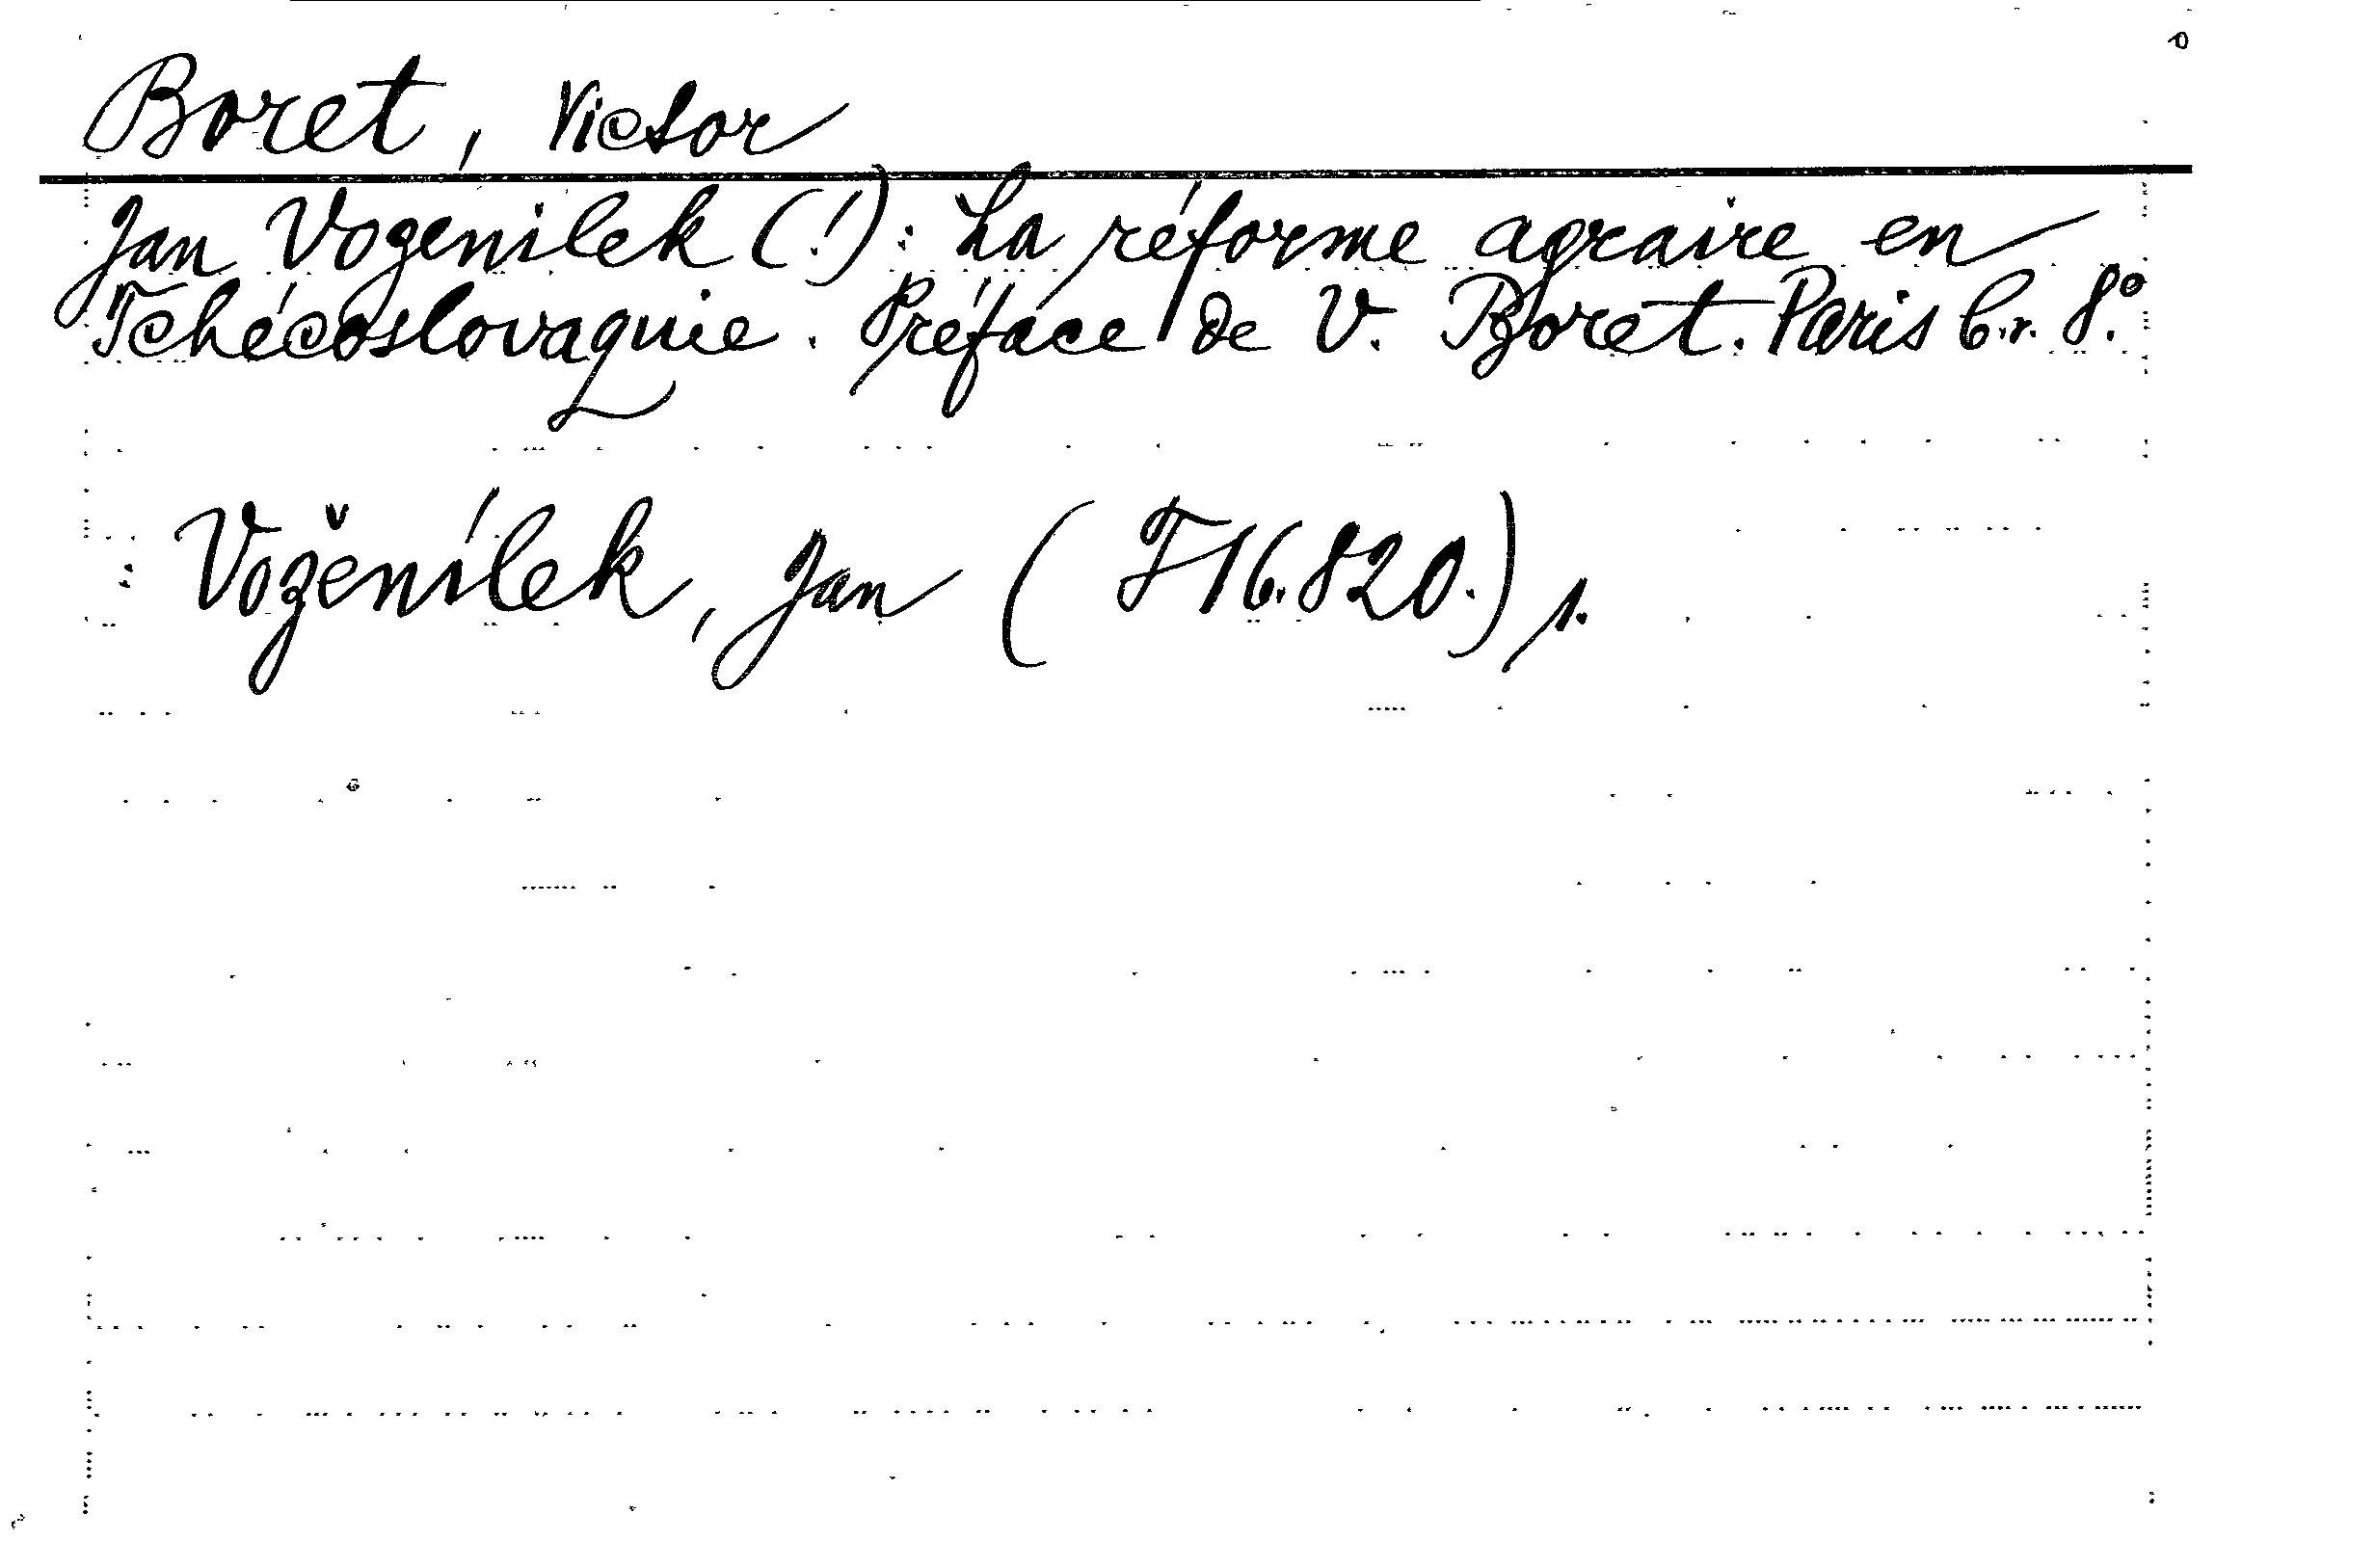 Boret, Victor
Jan Vozenilek (!): La réforme agraire en
Tchécoslovaquie. Préface de V. Boret. Paris b.r. 8.°
: Voženílek, Jan (F 16.820.) 1.